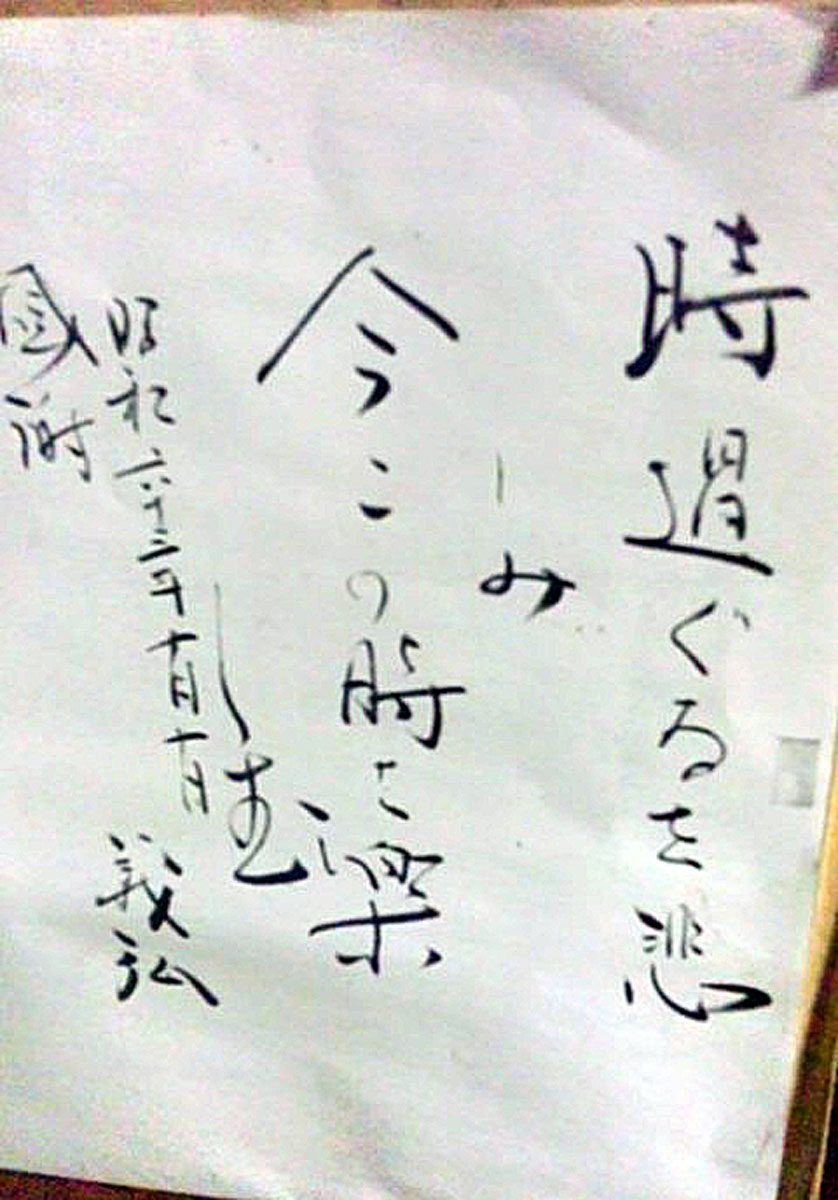 時過ぐるを悲
しみ
今この時を楽
しむ
昭和六十三年十月十日
義弘
感謝